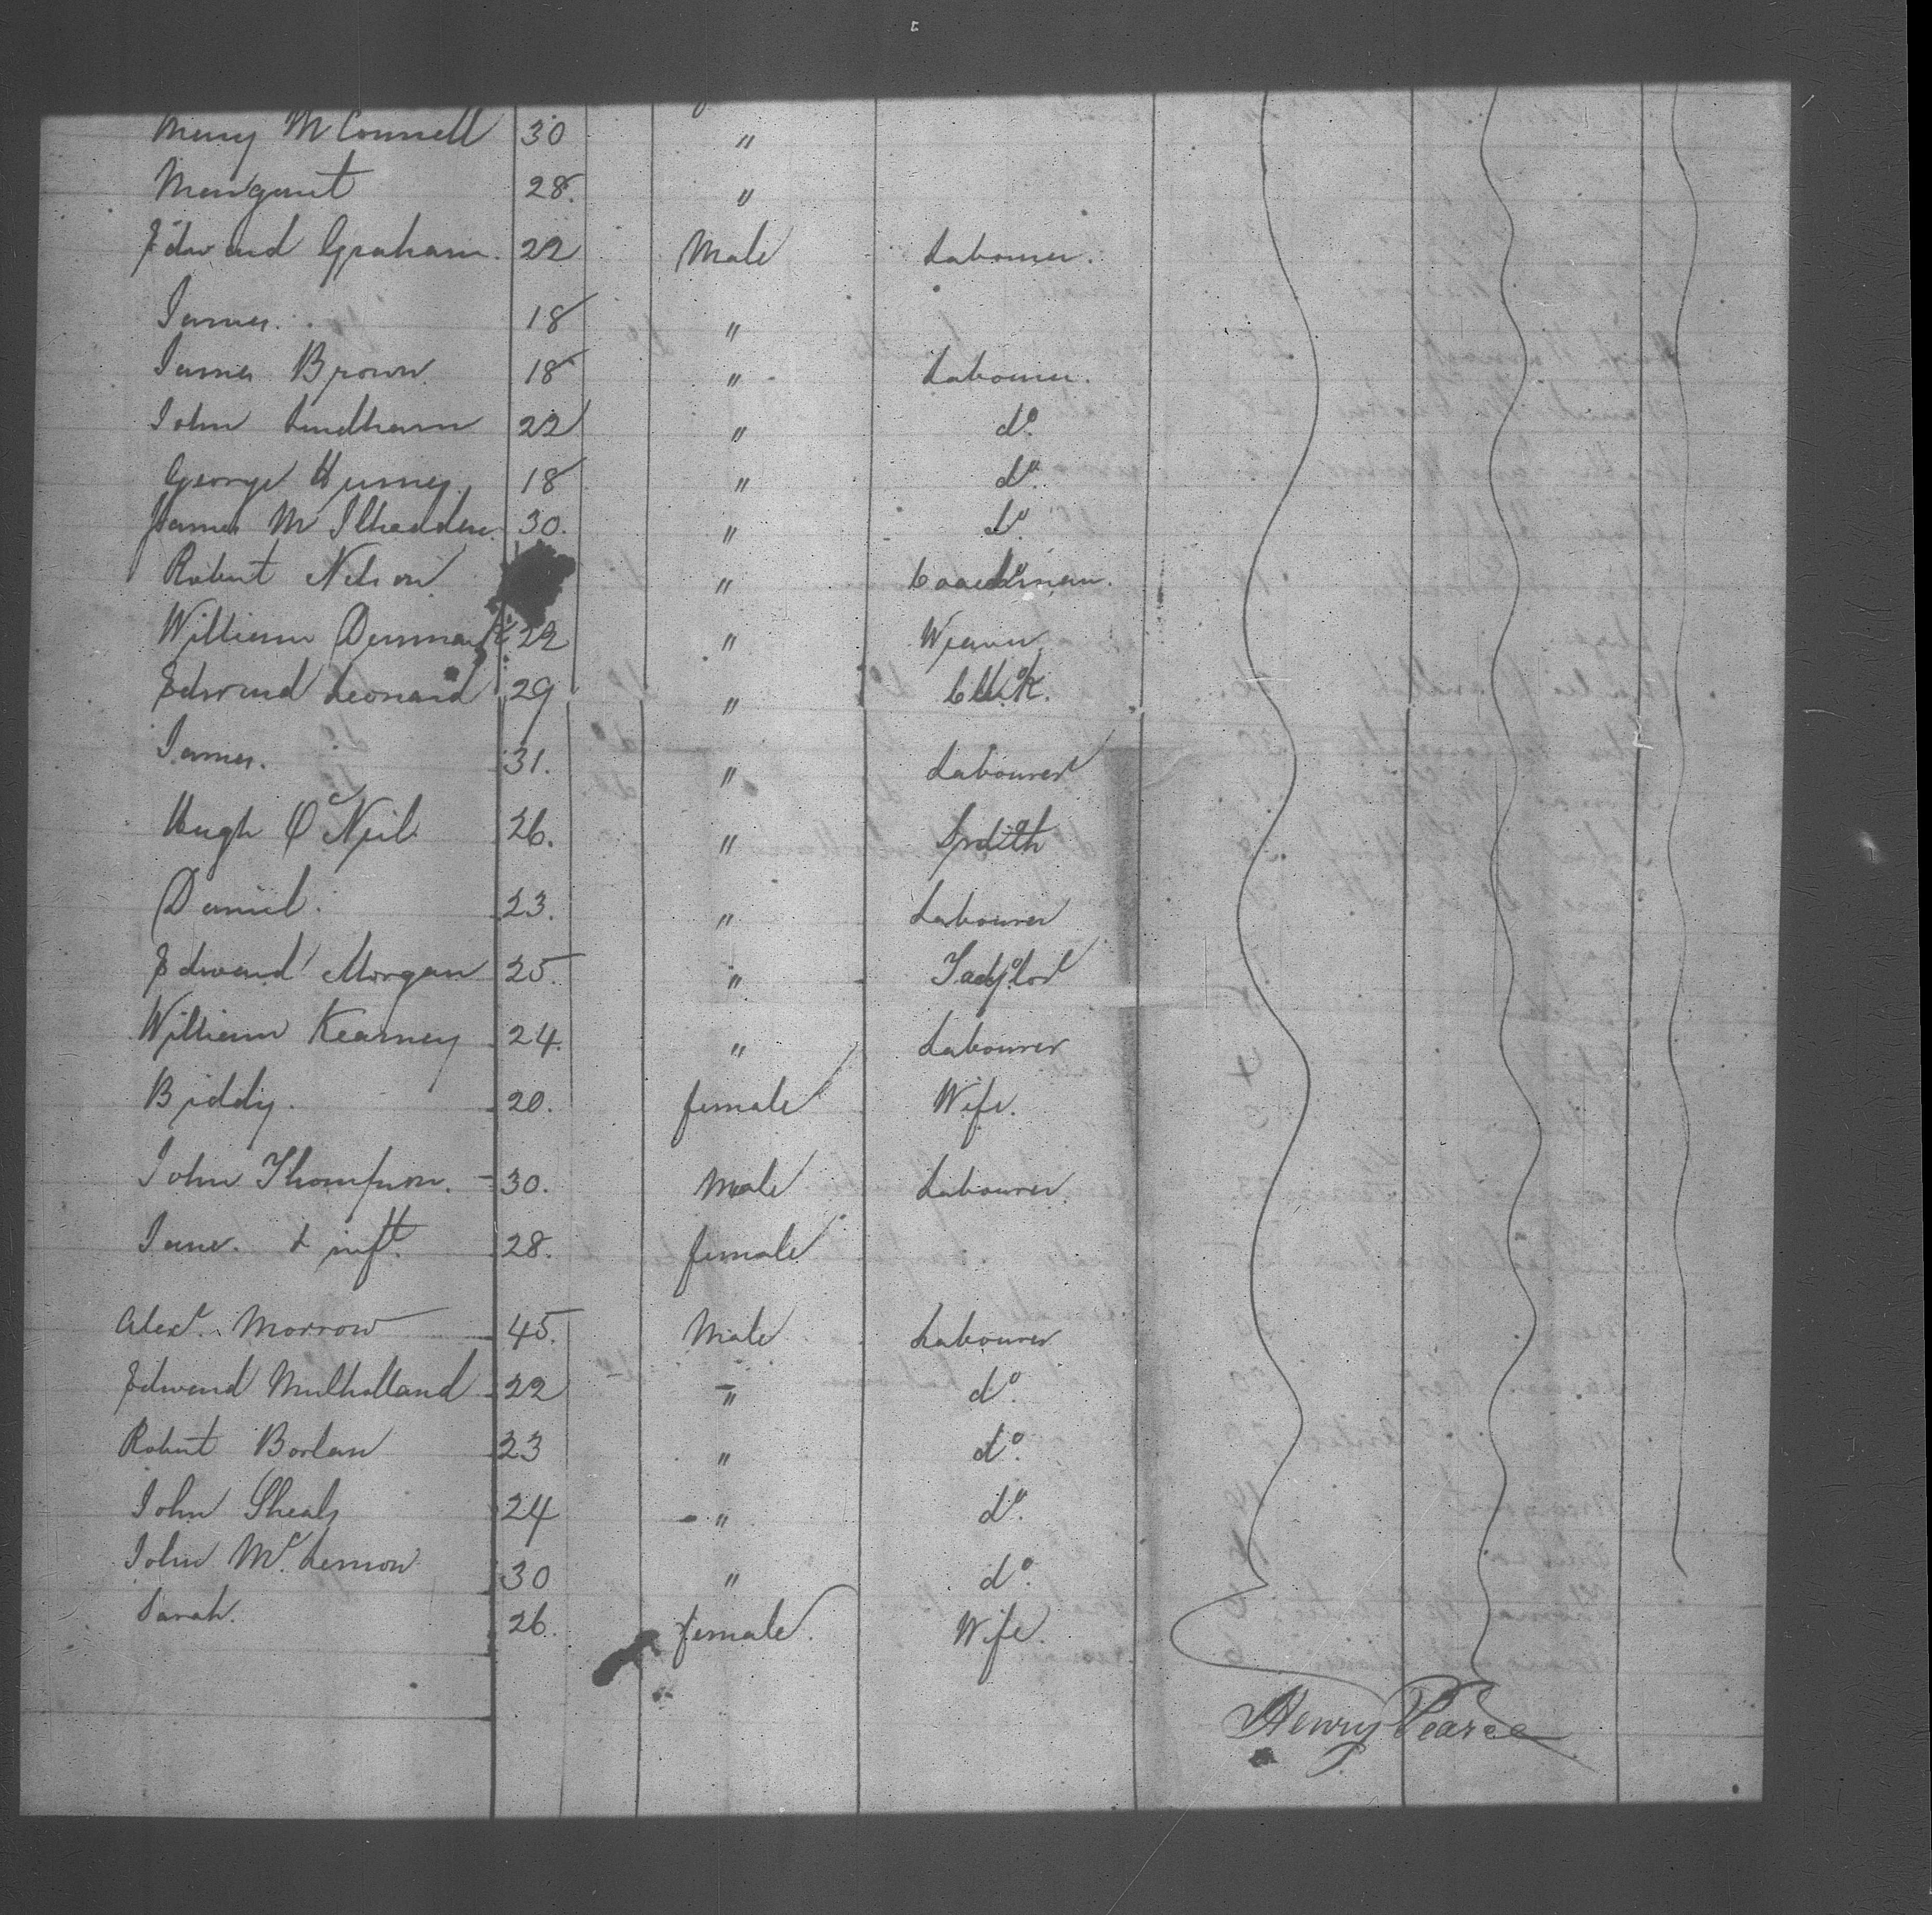 Mary McConnell 30 "
Margaret 28. "
Edward Graham. 22 Male Labourer.
James. 18 "
James Brown 18 " Labourer.
John Lindham 22 " do.
George Hurney. 18 " do.
James M 30. " do.
Robert Nelson " Coachman.
William Denmark 22 " Weaver
Edward Leonard 29 " Clerk.
James. 31. " Labourer
Hugh O Neil 26. " Smith
Daniel. 23. " Labourer
Edward Morgan 25. " Taylor
William Kearney 24. " Labourer
Biddy. 20. female Wife.
John Thompson. 30. Male Labourer.
Jane. & inft. 28. female
Alexr. Morrow 45. Male Labourer
Edward Mulholland 22 " do.
Robert Borlan 23 " do.
John Shealy 24 " do.
John Mc. Lernon 30 " do.
Sarah. 26. female. Wife.
Henry Pearce